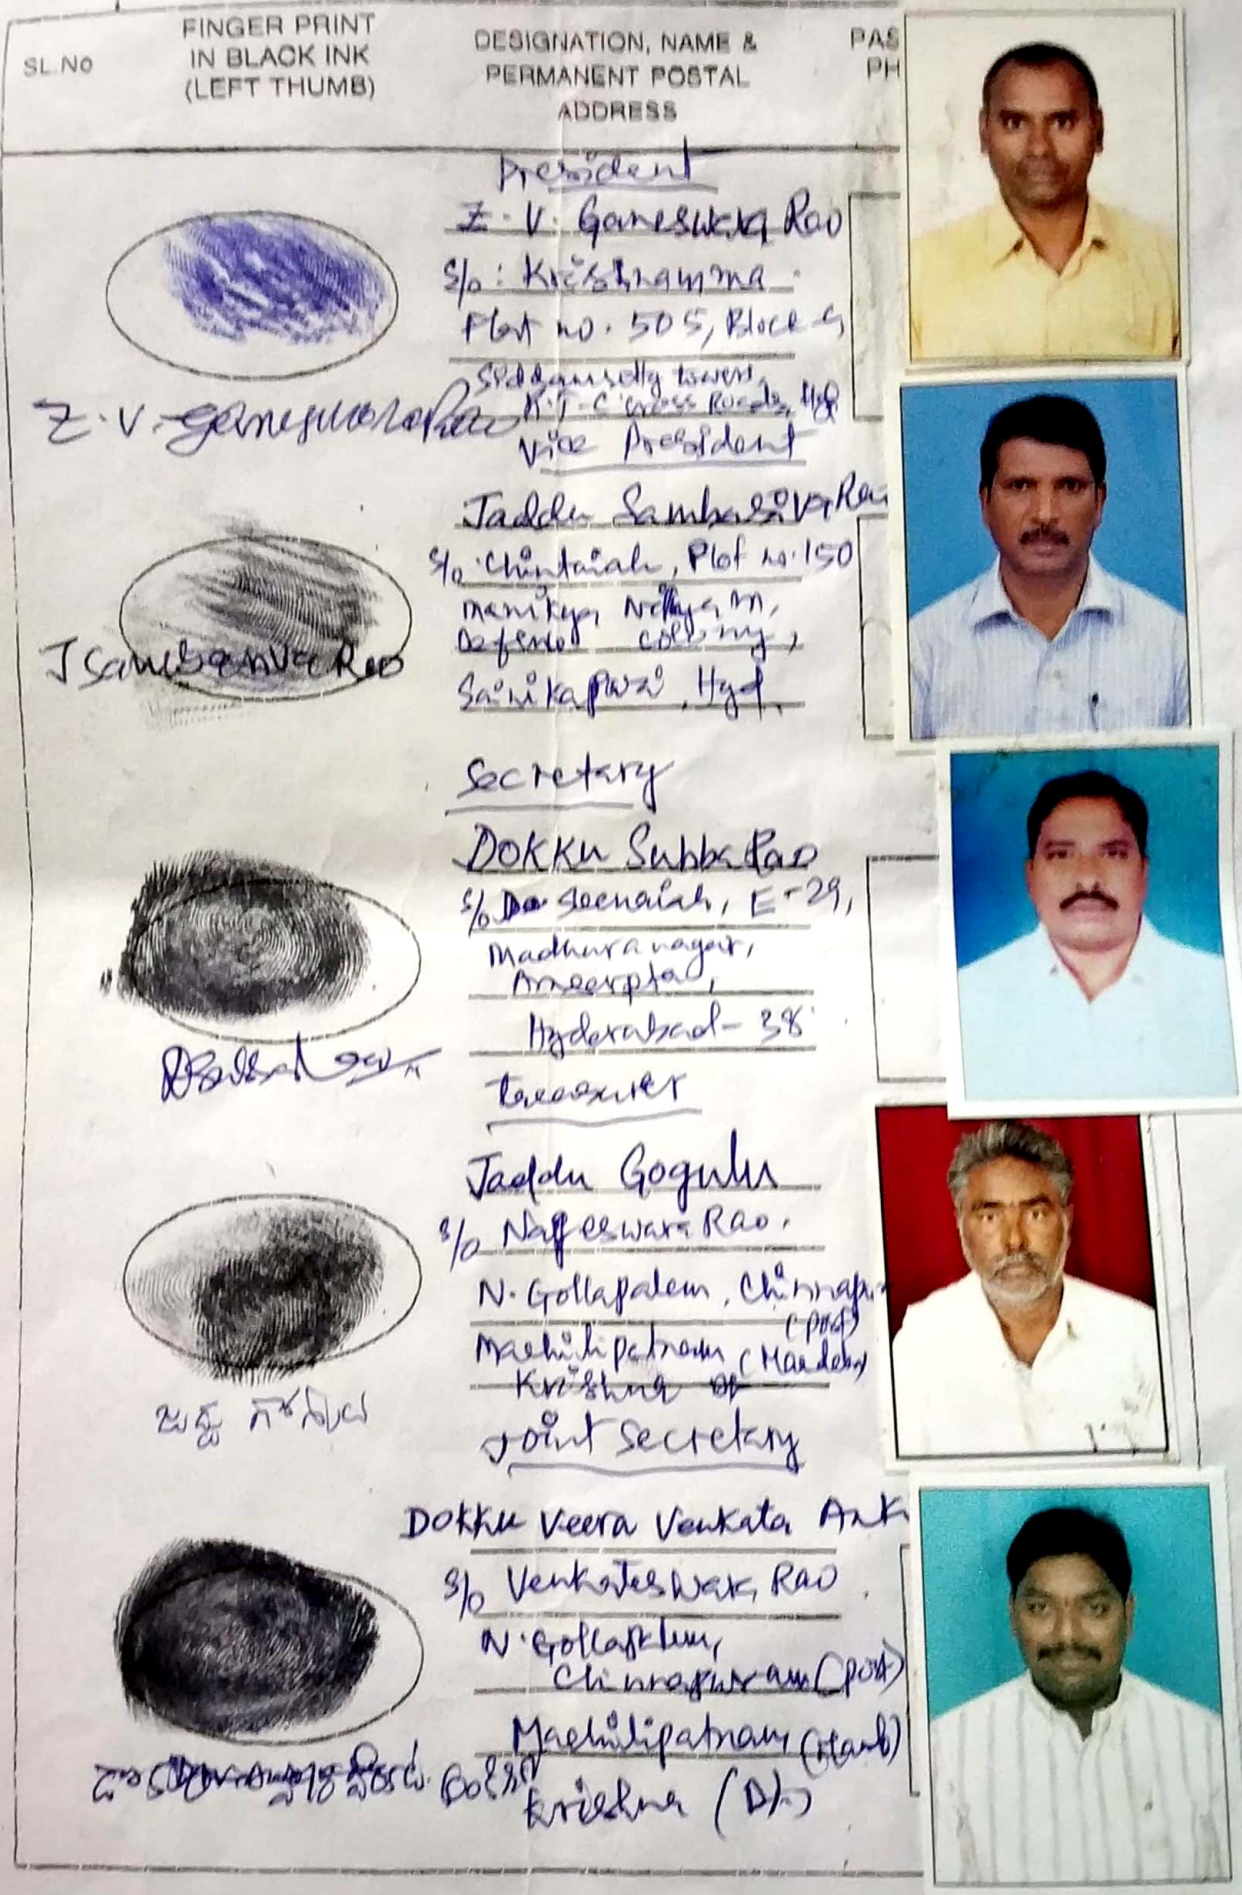 SL.No
FINGER PRINT
IN BLACK INK
(LEFT THUMB)
DESIGNATION, NAME &
PERMANENT POSTAL
ADDRESS
PAS
PH
President
Z. V. Ganeswara Rao
S/o: Krishnamma
Flat no. 505, Block-G
towers,
Cross Roads, Hyd
Z. V. Ganeswara Rao
Vice President
Jaddu Sambasiva Rao
S/o. Chintaiah, Plot no. 150
Manikya Nilayam,
Defence colony,
Sainikapuri, Hyd
J Sambasiva Rao
Secretary
DOKKU Subba Rao
S/o Seenaiah, E-29,
Madhuranagar,
Ameerpta,
Hyderabad-38
Treasurer
Jaddu Gogulu
S/o Nageswara Rao,
N. Gollapalem, Chinnapu
(post)
Machilipatnam (Mandal)
Krishna
Joint Secretary
DOKKU Veera Venkata Ank
S/o Venkateswara Rao
N. Gollapalem,
Chinnapuram (post)
Machilipatnam
Krishna (Dt)